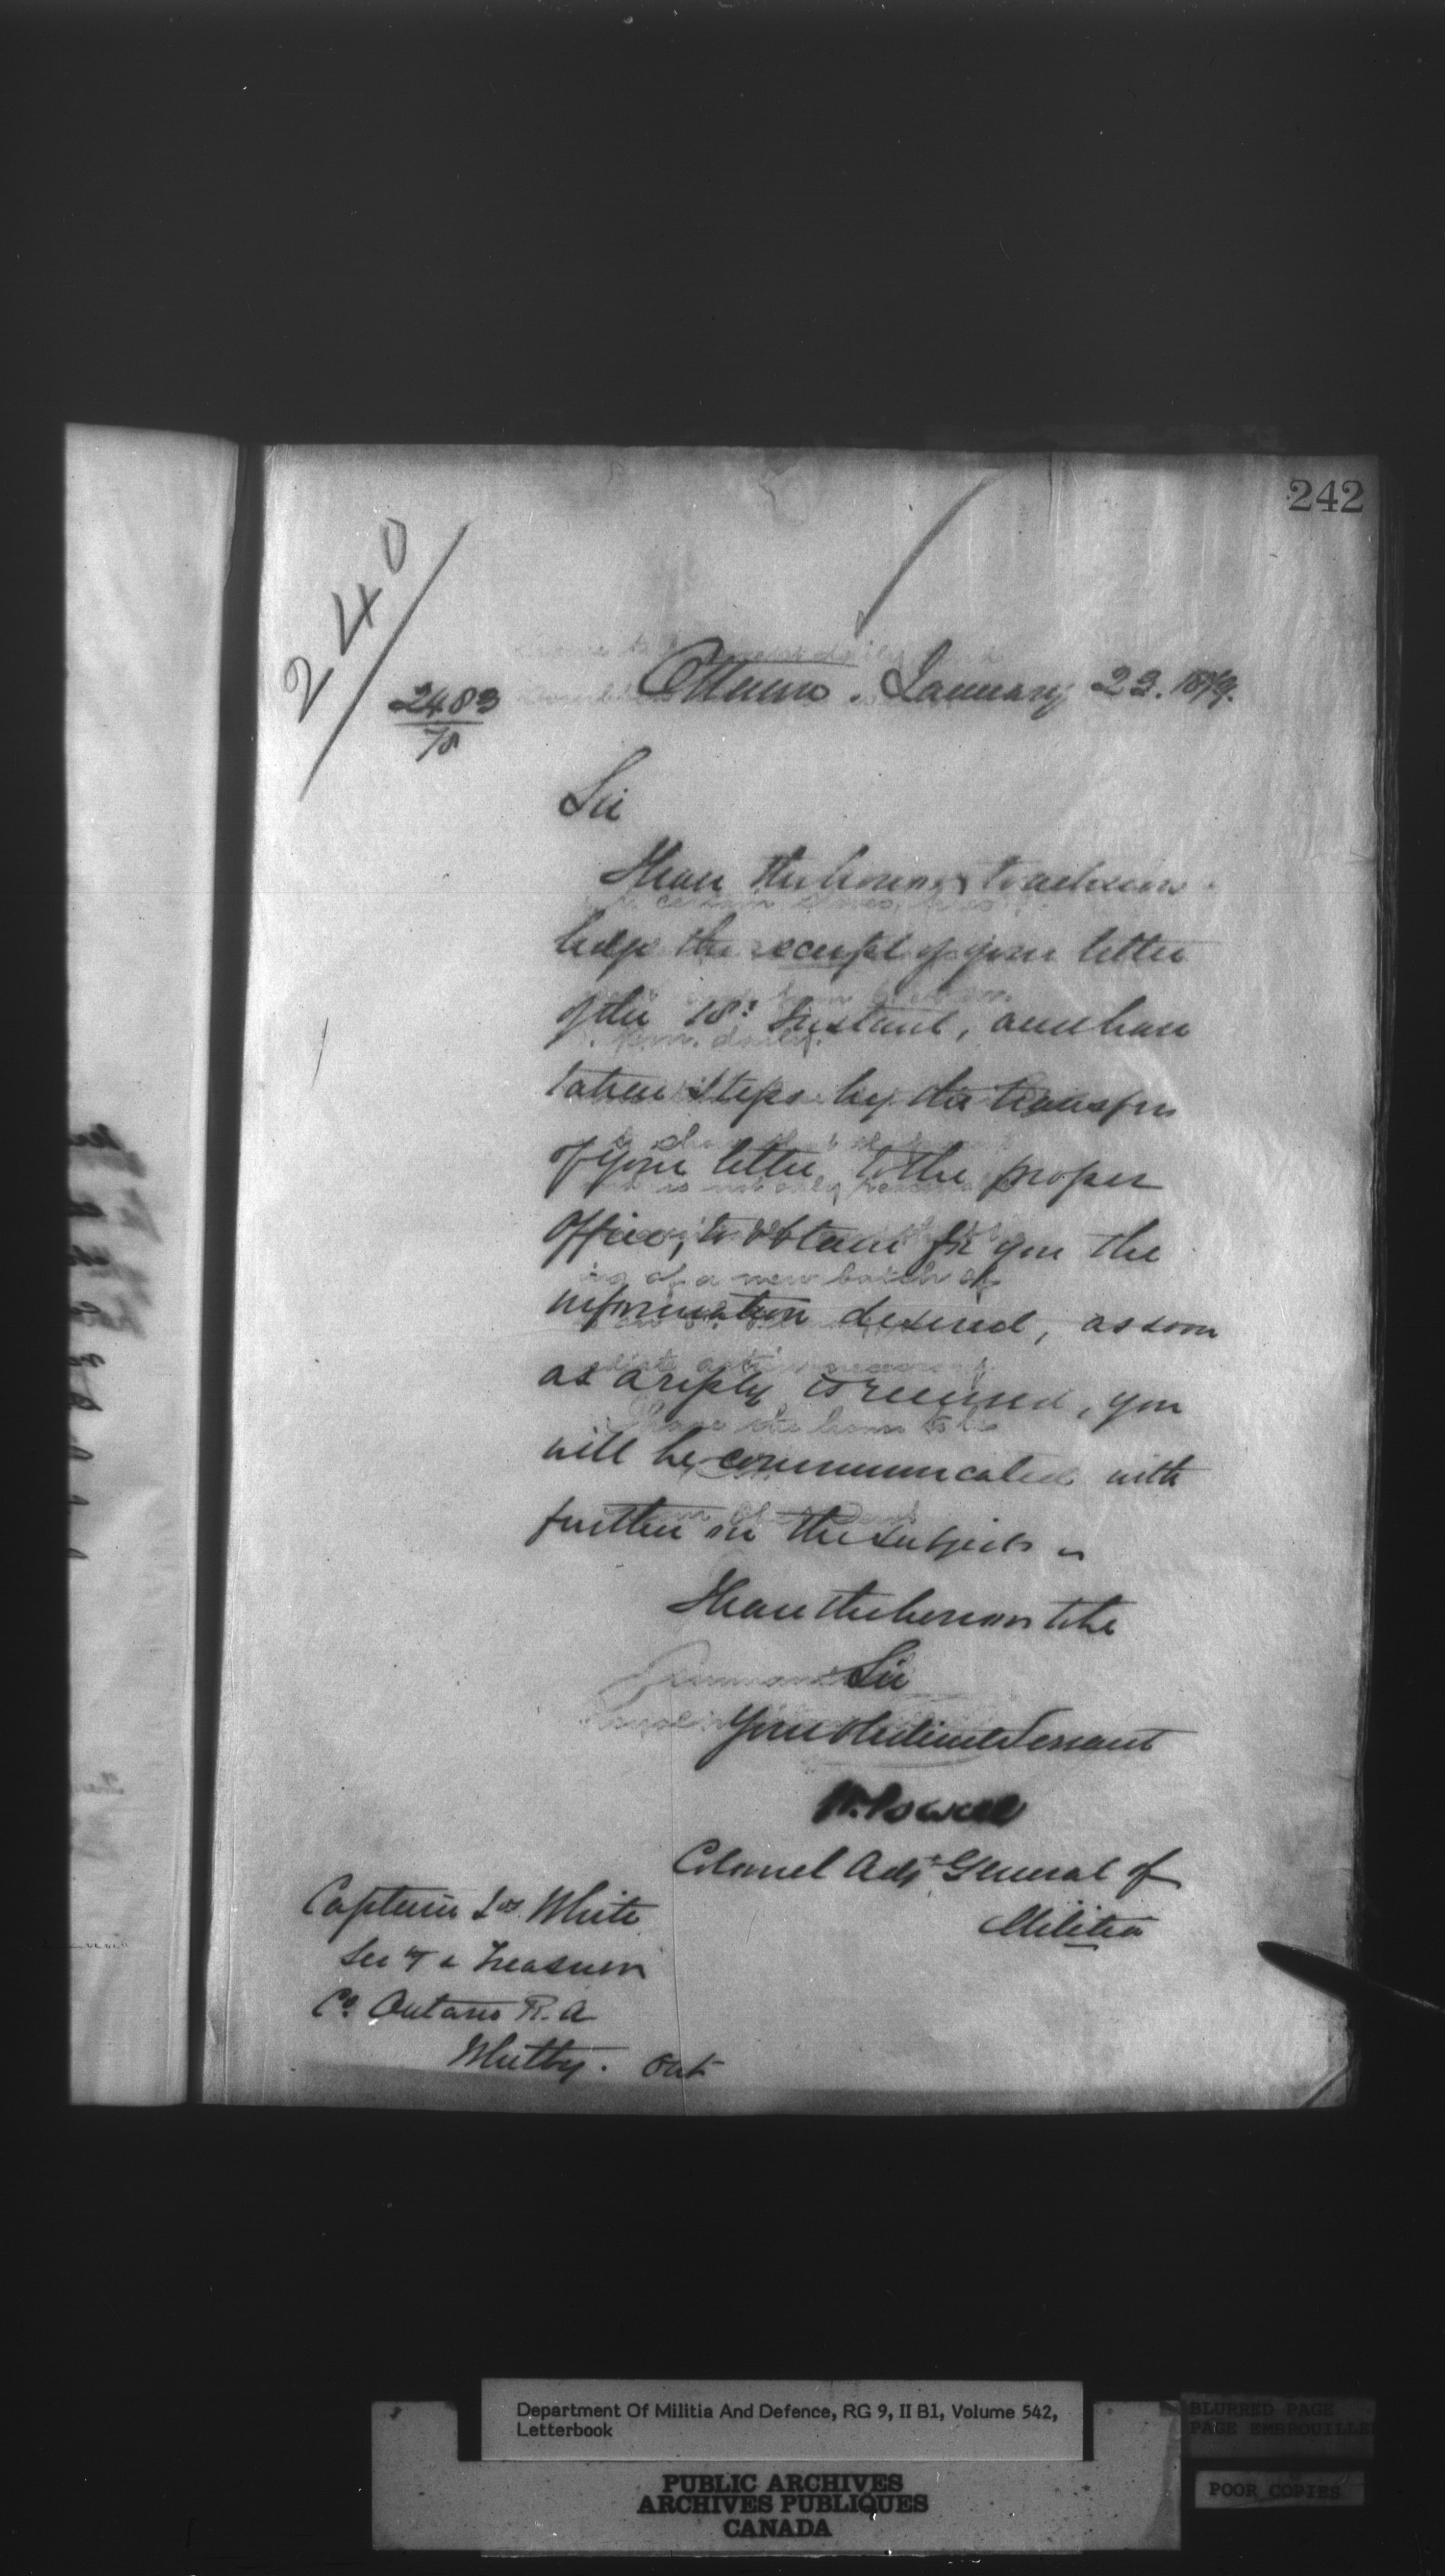 242
240
2483
78
Ottawa. January 23. 1879.
Sir
I have the honor to acknow-
ledge the receipt of your letter
of the 18th Instant, and have
taken steps by the transfer
of your letter, to the proper
Office, to obtain for you the
information desired, as soon
as a reply is received, you
will be communicated with
further on the subject
I have the honor to be
Sir
Your Obedient Servant
W. Powell
Colonel Adjt General of
Militia
Captain White
Secy & Treasurer
Co. Ontario R. A
Whitby. Ont
Department Of Militia And Defence, RG 9, II B1, Volume 542,
Letterbook
PUBLIC ARCHIVES
ARCHIVES PUBLIQUES
CANADA
BLURRED PAGE
PAGE EMBROUILLE
POOR COPIES